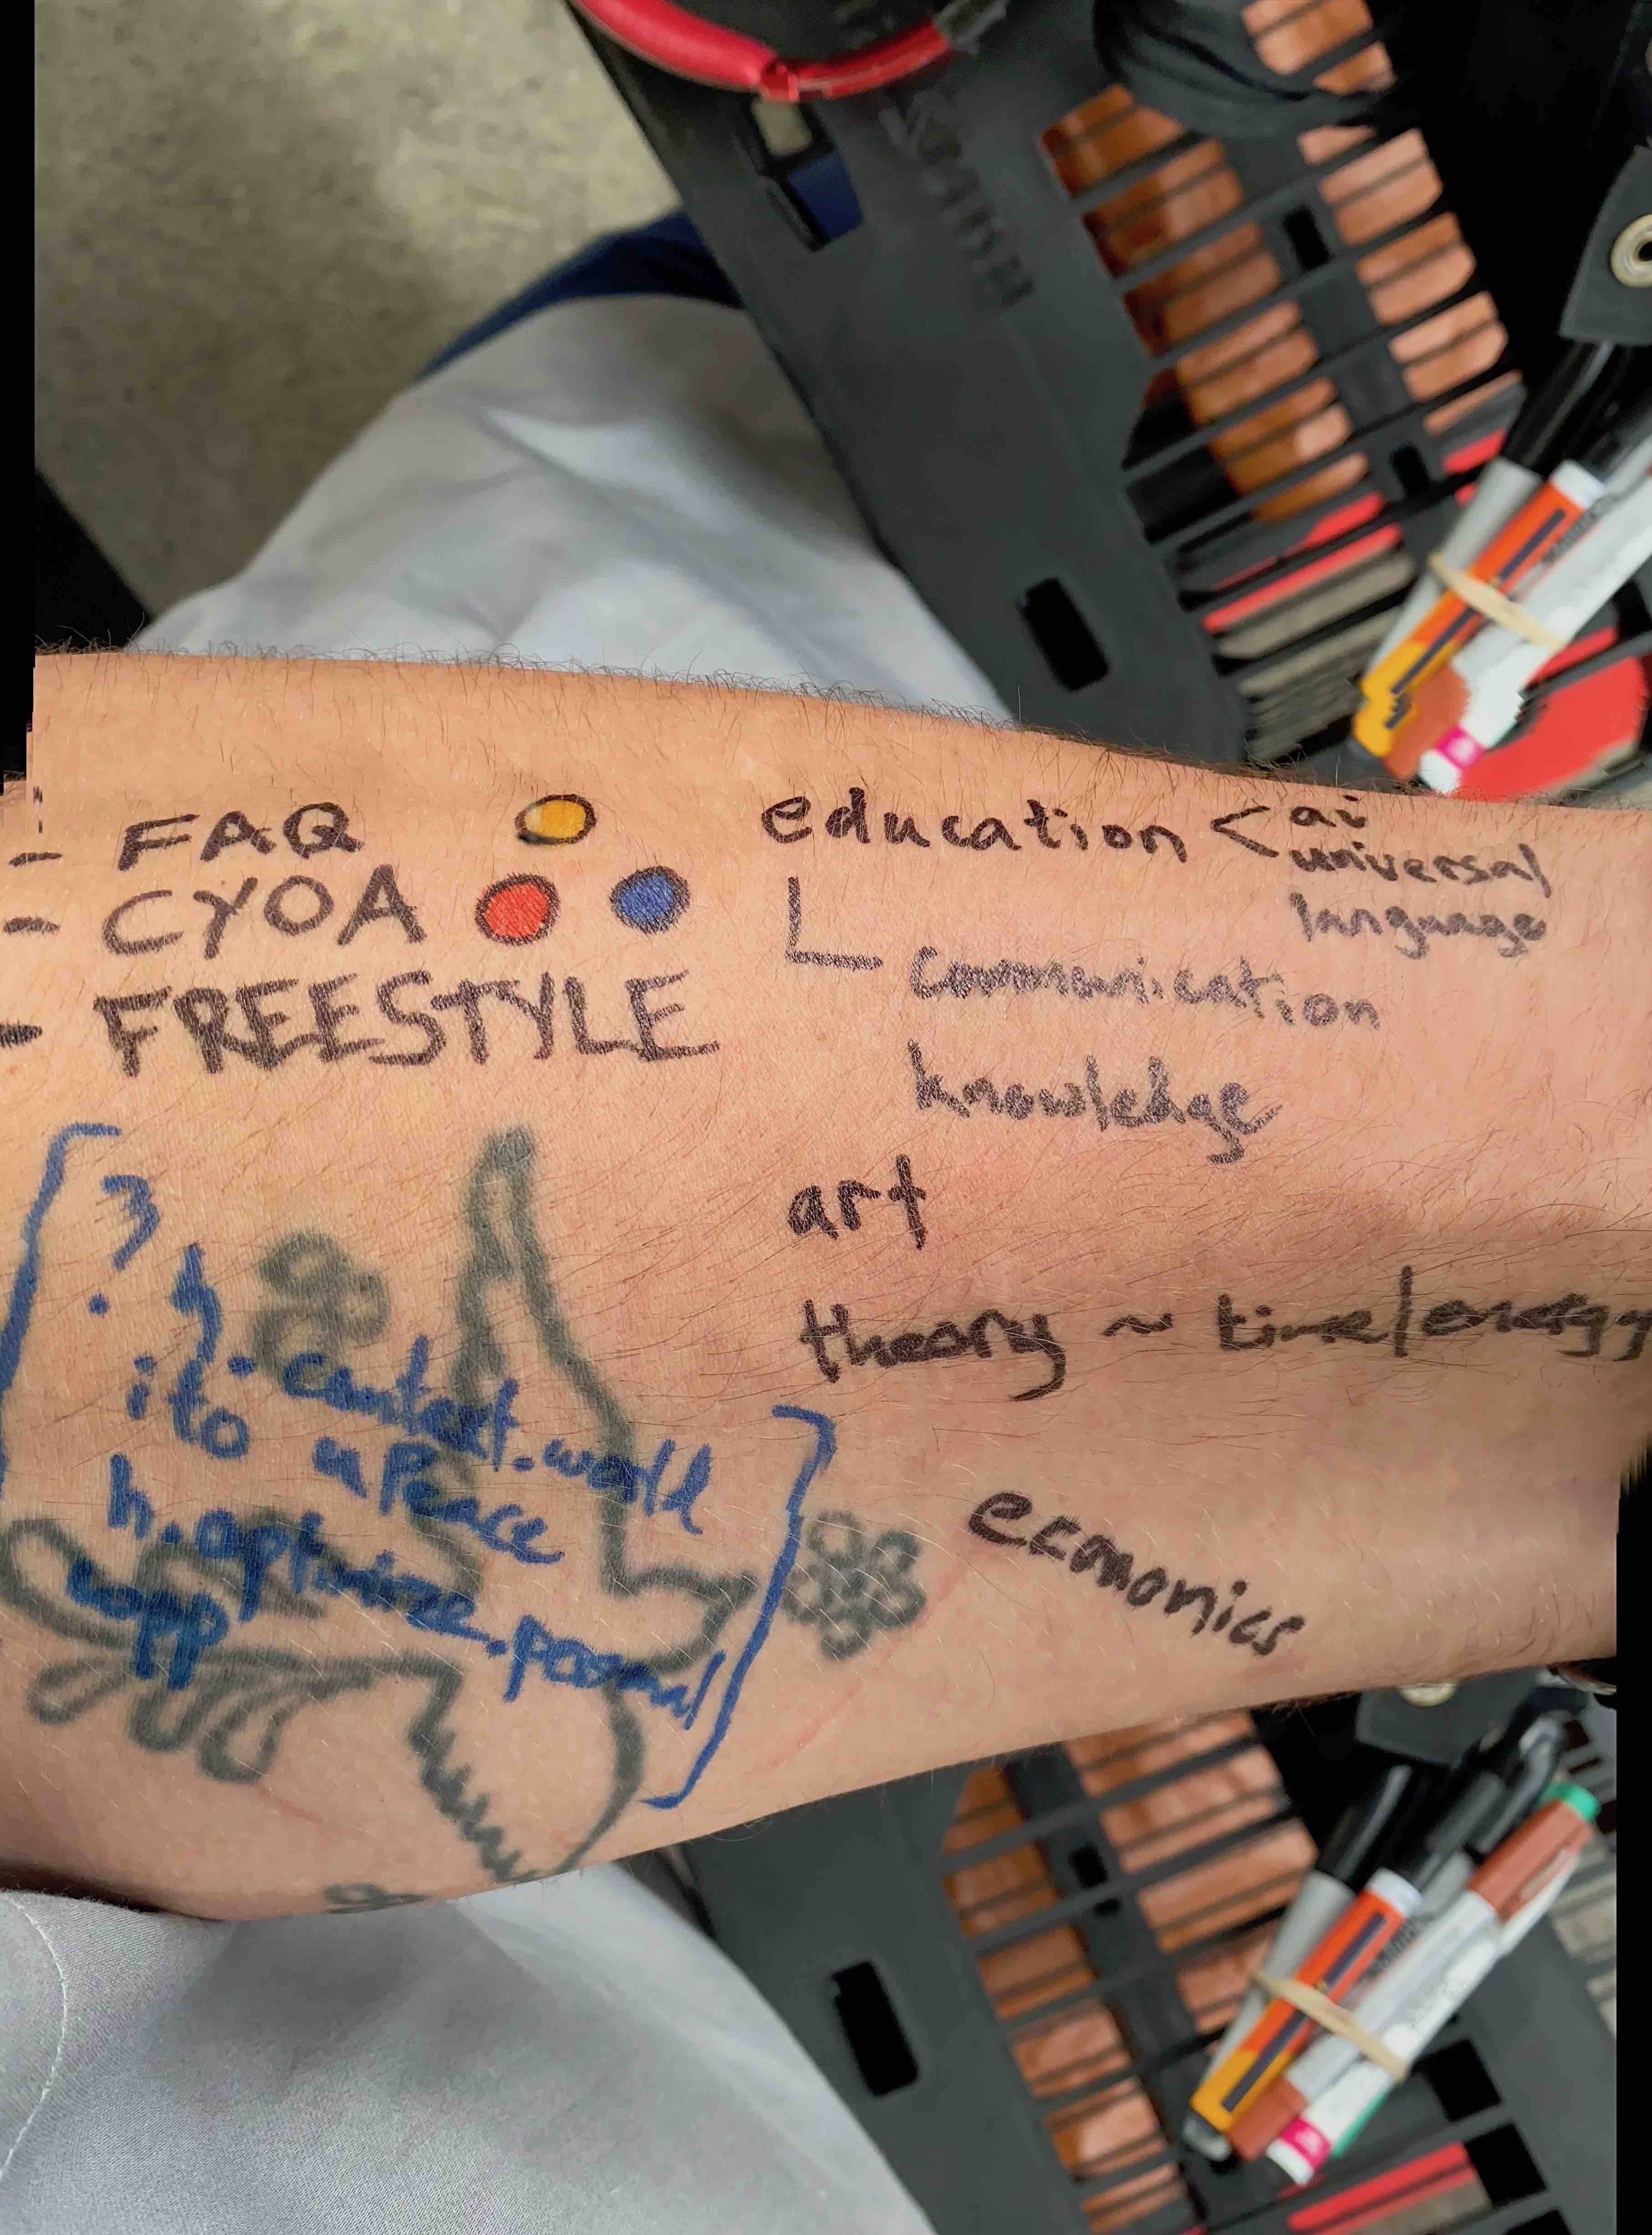 - FAQ
- CYOA
- FREESTYLE
education < ai
universal
language
communication
knowledge
art
theory ~ time/energy
economics
context.world
peace
h.optimize.